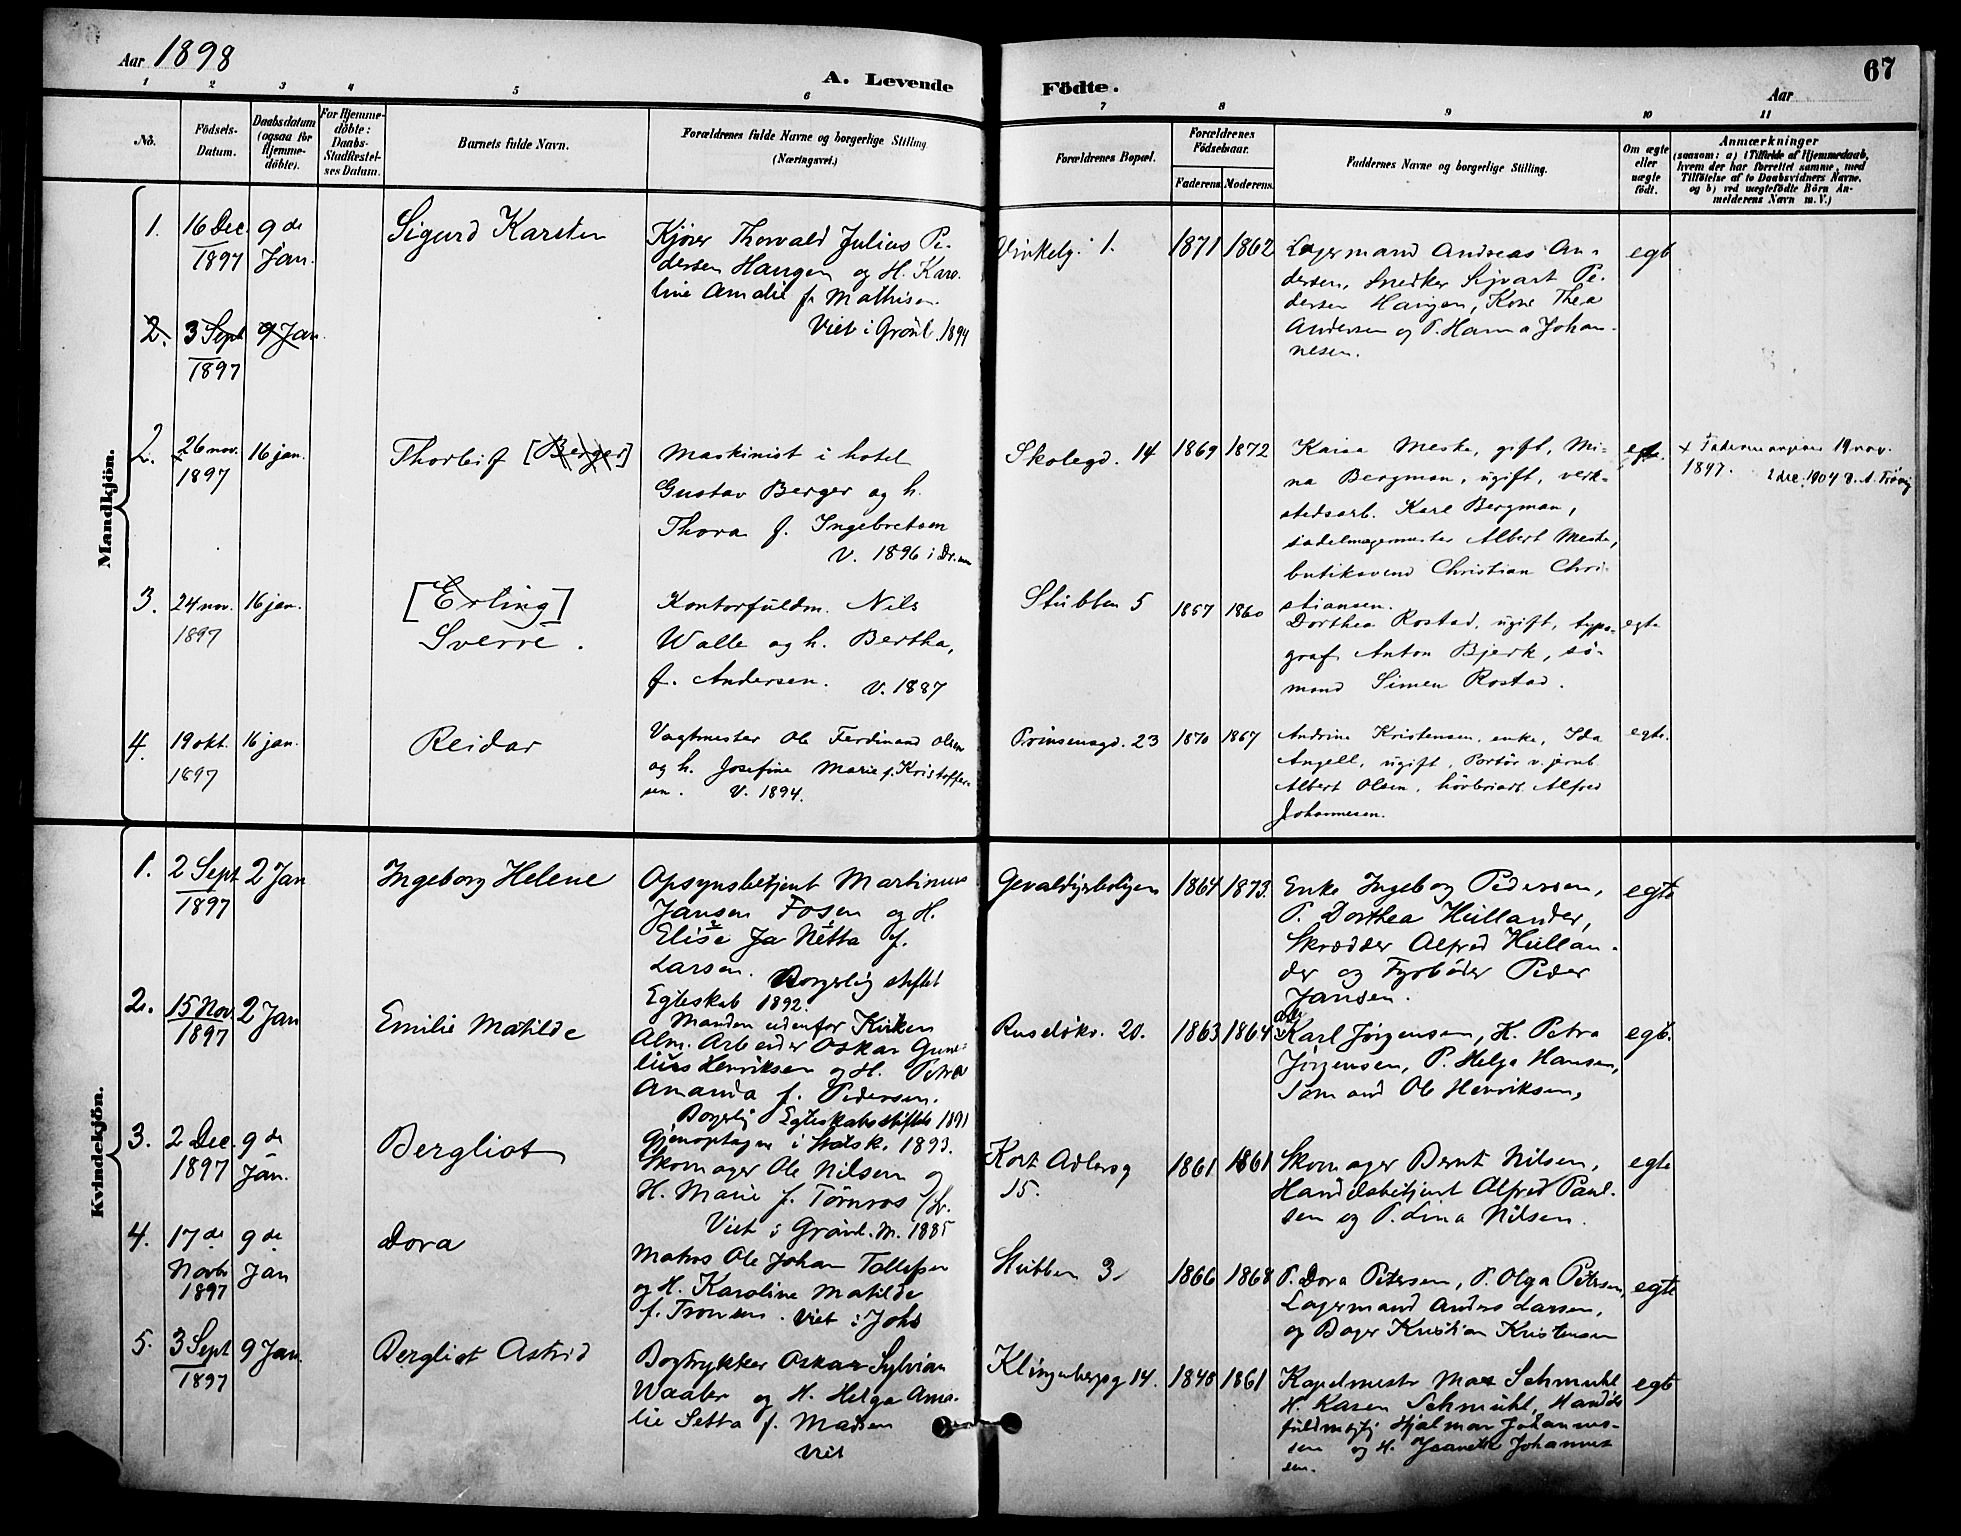 Aar 1898
A. Levende
Födte.
67
Aar
1 2 3 4 5 6 7 8 9 10 11
No.
Födsels-
Datum.
Daabsdatum
(ogsaa for
Hjemme-
döbte).
For Hjemme-
döbte:
Daabs-
Stadfæstel-
ses Datum.
Barnets fulde Navn.
Forældrenes fulde Navne og borgerlige Stilling
(Næringsvei.)
Forældrenes Bopæl.
Forældrenes
Födselsaar.
Faderens. Moderens.
Faddernes Navne og borgerlige Stilling.
Om ægte
eller
uægte
födt.
Anmærkninger
(saasom: a) i Tilfælde af Hjemmedaab,
hvem der har forrettet samme, med
Tilföielse af to Daabsvidners Navne,
og b) ved uægtefödte Börn An-
melderens Navn m. V.)
Mandkjön.
1.
16 Dec.
1897
9 de
Jan.
Sigurd Karsten
Kjører Thorvald Julius Pe-
dersen Haugen og H. Karo-
line Amalie f. Mathisen.
Viet i Grönl. 1894
Vinkelg. 1.
1871
1862
Lagermand Andreas An-
dersen, Snedker Sjvart Pe-
dersen Haugen, Kone Thea
Andersen og P. Hanna Johan-
nesen.
egte
2.
3 Sept
1897
9 Jan
2.
26 nov.
1897
16 jan.
Thorleif [Berger]
Maskinist i hotel
Gustav Berger og h.
Thora f. Ingebretsen
V. 1896 i Dr.men
Skolegd. 14
1869
1872
Kaisa Meske, gift, Mi-
na Bergman, ugift, verk-
stedsarb. Karl Bergman,
sadelmagermester Albert Meske,
butiksvend Christian Chri-
stiansen.
egte.
19 nov.
1897.
2 dec. 1904
3.
24 nov.
1897
16 jan.
[Erling]
Sverre.
Kontorfuldm. Nils
Walle og h. Bertha,
f. Andersen. V. 1887
Stubben 5
1857
1860
Dorthea Rostad, ugift, typo-
graf Anton Bjerk, sö-
mand Simen Rostad.
egte
4.
19 okt.
1897
16 jan.
Reidar
Vagtmester Ole Ferdinand Olsen
og h. Josefine Marie f. Kristoffer-
sen. V. 1894.
Prinsensgd. 23
1870
1867
Andrine Kristensen, enke, Ida
Angell, ugift, Portör v. jernb.
Albert Olsen, Alfred
Johannesen.
egte.
Kvindekjön.
1.
2 Sept
1897
2 Jan
Ingeborg Helene
Opsynsbetjent Martinus
Jansen Fosen og H.
Elise Ja Netta f.
Larsen. Borgerlig stiftet
Egteskab 1892.
Manden udenfor Kirken
Gevaldigerboligen
1864
1873.
Enke Ingeborg Pedersen,
P. Dorthea Hüllander,
Skrædder Alfred Hüllan-
der og Fyrböder Peder
Jansen.
egte
2.
15 Nov.
1897
2 Jan
Emilie Matilde
Alm. Arbeider Oskar Gune-
lius Henriksen og H. Petra
Amanda f. Pedersen.
Borgerlig Egteskab stiftet 1891
Gjenoptagen i Statsk. 1893.
Ruselökv. 20.
1863
1864
Karl Jörgensen, H. Petra
Jörgensen, P. Helga Hansen,
Sömand Ole Henriksen,
egte.
3.
2 Dec.
1897
9 de
Jan.
Bergliot
Skomager Ole Nilsen og
H. Marie f. Törnros
Viet i Grönl. M. 1885
Kort Adlersg
15.
1861
1861
Skomager Bernt Nilsen,
Handelsbetjent Alfred Paul-
sen og P. Lina Nilsen.
egte
4.
17 de
Novbr
1897
9 de
Jan
Dora
Matros Ole Johan Tollefsen
og H. Karoline Matilde
f. Tronsen. Viet i Johs
Stubben 3.
1866
1868
P. Dora Petersen, P. Olga Petersen,
Lagermand Anders Larsen,
og Bager Kristian Kristensen
egte
5.
3 Sept
1897
9 Jan.
Bergliot Astrid
Bogtrykker Oskar Sylvian
Waaler og H. Helga Ama-
lie Setta f. Madsen
Viet
Klingenbergsg 14.
1848
1861
Kapelmester Max Schmuhl
H. Karen Schmühl, Handels
fuldmegtig Hjalmar Johannes-
sen og H. Jeanette Johannes
sen.
egte